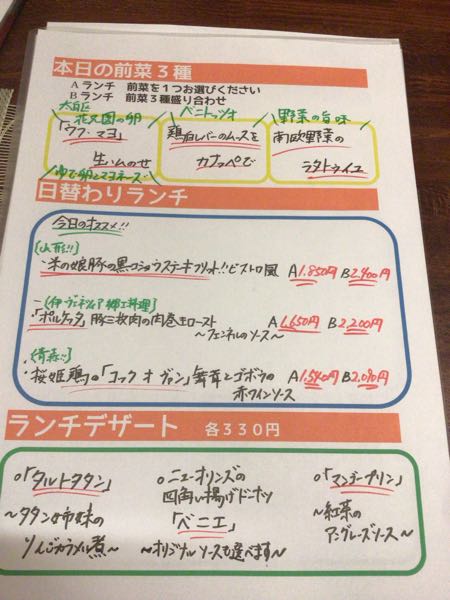 本日の前菜3種
Aランチ 前菜を1つお選びください
Bランチ 前菜3種盛り合わせ
花文園の卵
「ウフ・マヨ」
生ハムのせ
ゆで卵とマヨネーズ
ベニトッツォ
鶏白レバーのムースを
カナッペで
野菜の旨味
南欧野菜の
ラタトゥイユ
日替わりランチ
今日のオススメ!!
(山形!!)
・米の娘豚の黒コショウステーキフリット!!ビストロ風 A1,850円 B2,400円
(伊ヴェネツィア郷土料理)
・「ポルケッタ」豚三枚肉の肉巻きロースト A1,650円 B2,200円
〜フェンネルのソース〜
(青森!!)
・桜姫鶏の「コック オ ヴァン」舞茸とゴボウの A1,540円 B2,090円
赤ワインソース
ランチデザート 各330円
○「タルトタタン」
〜タタン姉妹の
りんごカラメル煮〜
○ニューオリンズの
四角い揚げドーナツ
「ベニエ」
〜オリジナルソースも選べます〜
○「マンゴープリン」
〜紅茶の
アングレーズソース〜